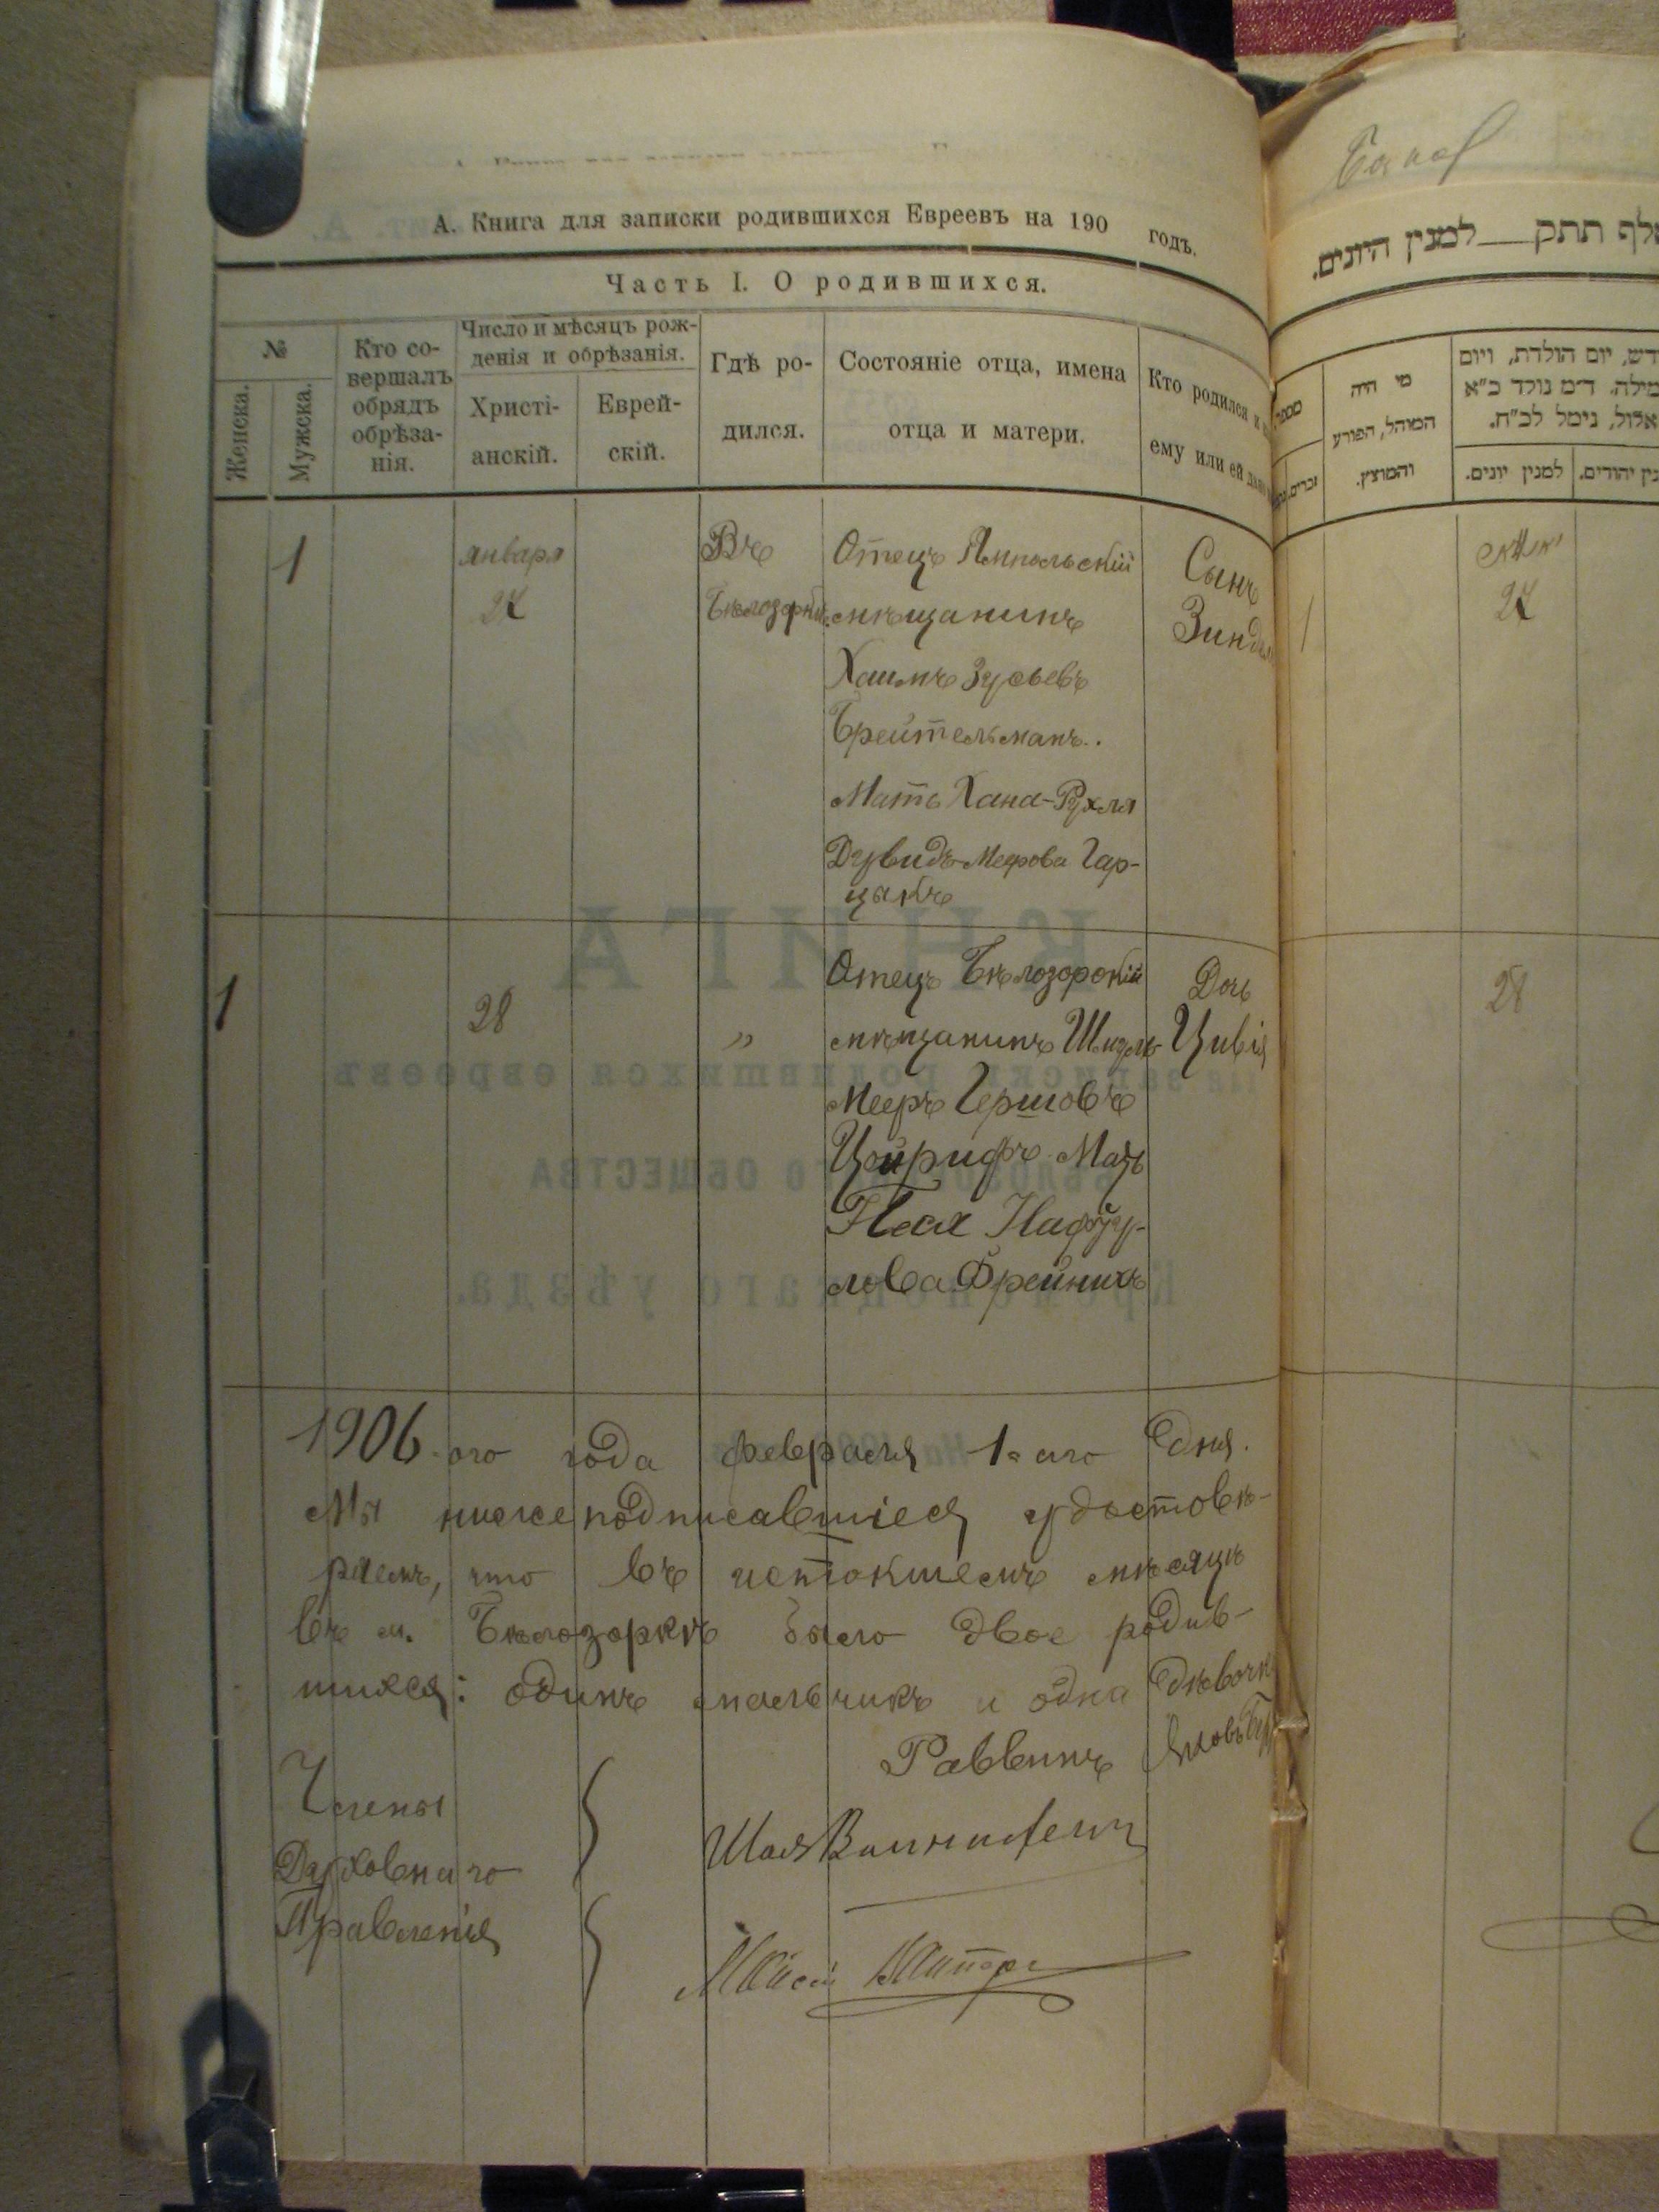 А. Книга для записки родившихся Евреевъ на 190 годъ.
Часть I. О родившихся.
№
Женска.
Мужска.
Кто со-
вершалъ
обрядъ
обрѣза-
нія.
Число и мѣсяцъ рож-
денія и обрѣзанія.
Христі-
анскій.
Еврей-
скій.
Гдѣ ро-
дился.
Состояніе отца, имена
отца и матери.
Кто родился и
ему или ей дано
1
января
27
Въ
Бѣлозоркѣ
Отецъ Ямпольскій
мѣщанинъ
Хаимъ Зусьевъ
Брейтельманъ.
Мать Хана-Рухля
Дувидъ-Меерова Гар-
цакъ
Сынъ
1
28
"
Отецъ Бѣлозорскій
мѣщанинъ Шмуль-
Мееръ Гершовъ
Цирифъ Мать
Песя Нафту-
лова Фрейнихъ
Дочь
Цивія
1906-ого года февраля 1-аго дня.
Мы нижеподписавшіеся удостовѣ-
ряемъ, что въ истокшемъ мѣсяцѣ
въ м. Бѣлозоркѣ было двое родив-
шихся: одинъ мальчикъ и одна дѣвочка
Раввинъ
Члены
Духовнаго
Правленія
למנין היונים.
תתק
מי היה
המוהל, הפורע
והמוצץ.
יום הולדת, ויום
ד״מ נולד כ״א
אלול, נימל לכ״ח.
למנין יונים.
יהודים.
1
27
28